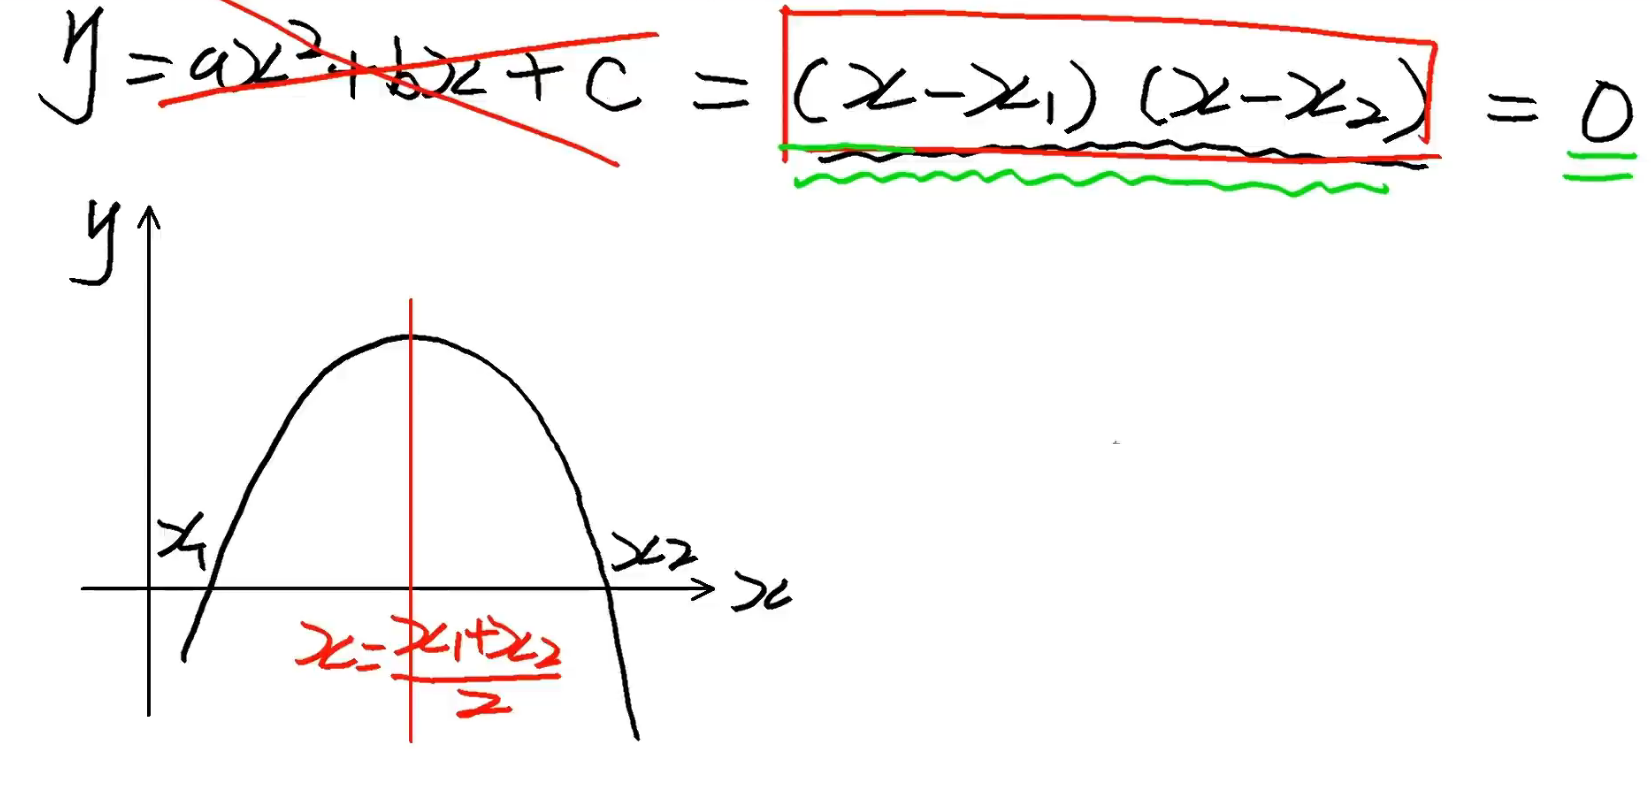 y = ax² + bx + c = (x - x₁) (x - x₂) = 0
y
x₁
x₂
x
x = (x₁ + x₂) / 2